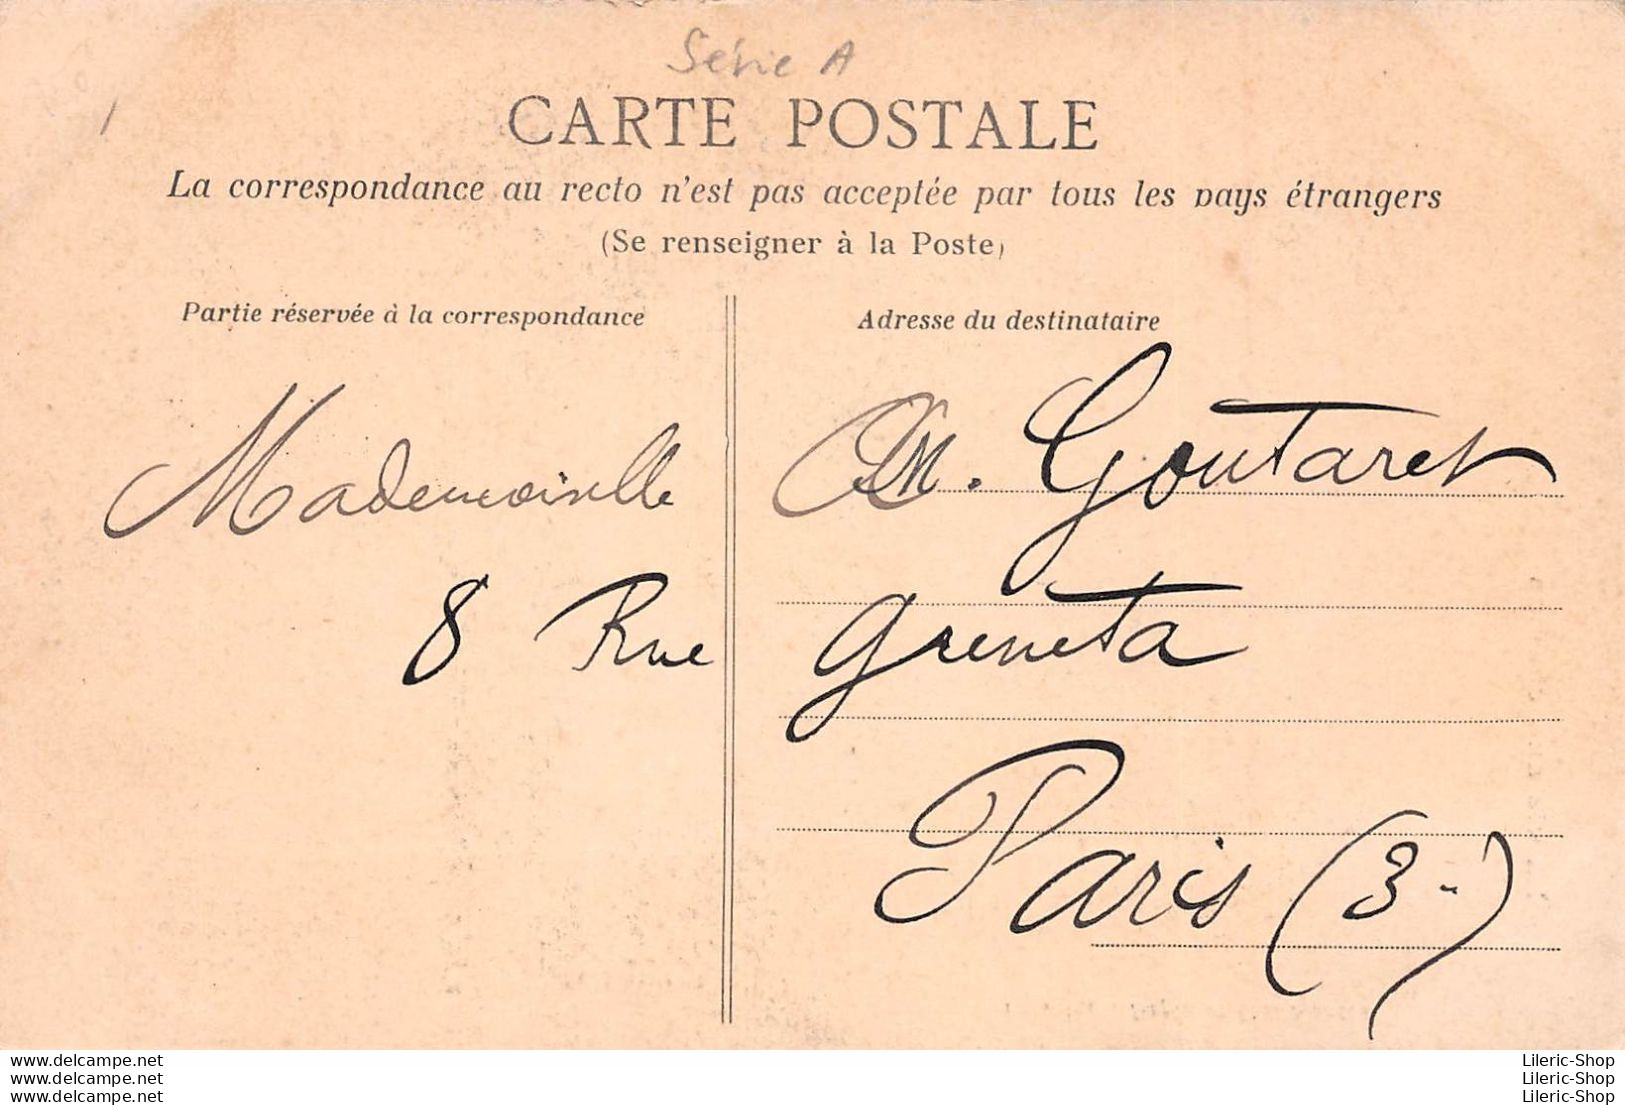 Série A
CARTE POSTALE
La correspondance au recto n'est pas acceptée par tous les pays étrangers
(Se renseigner à la Poste)
Partie réservée à la correspondance
Adresse du destinataire
Mademoiselle M. Goutaret
8 Rue Greneta
Paris (3)
www.delcampe.net
www.delcampe.net
www.delcampe.net
Lileric-Shop
Lileric-Shop
Lileric-Shop